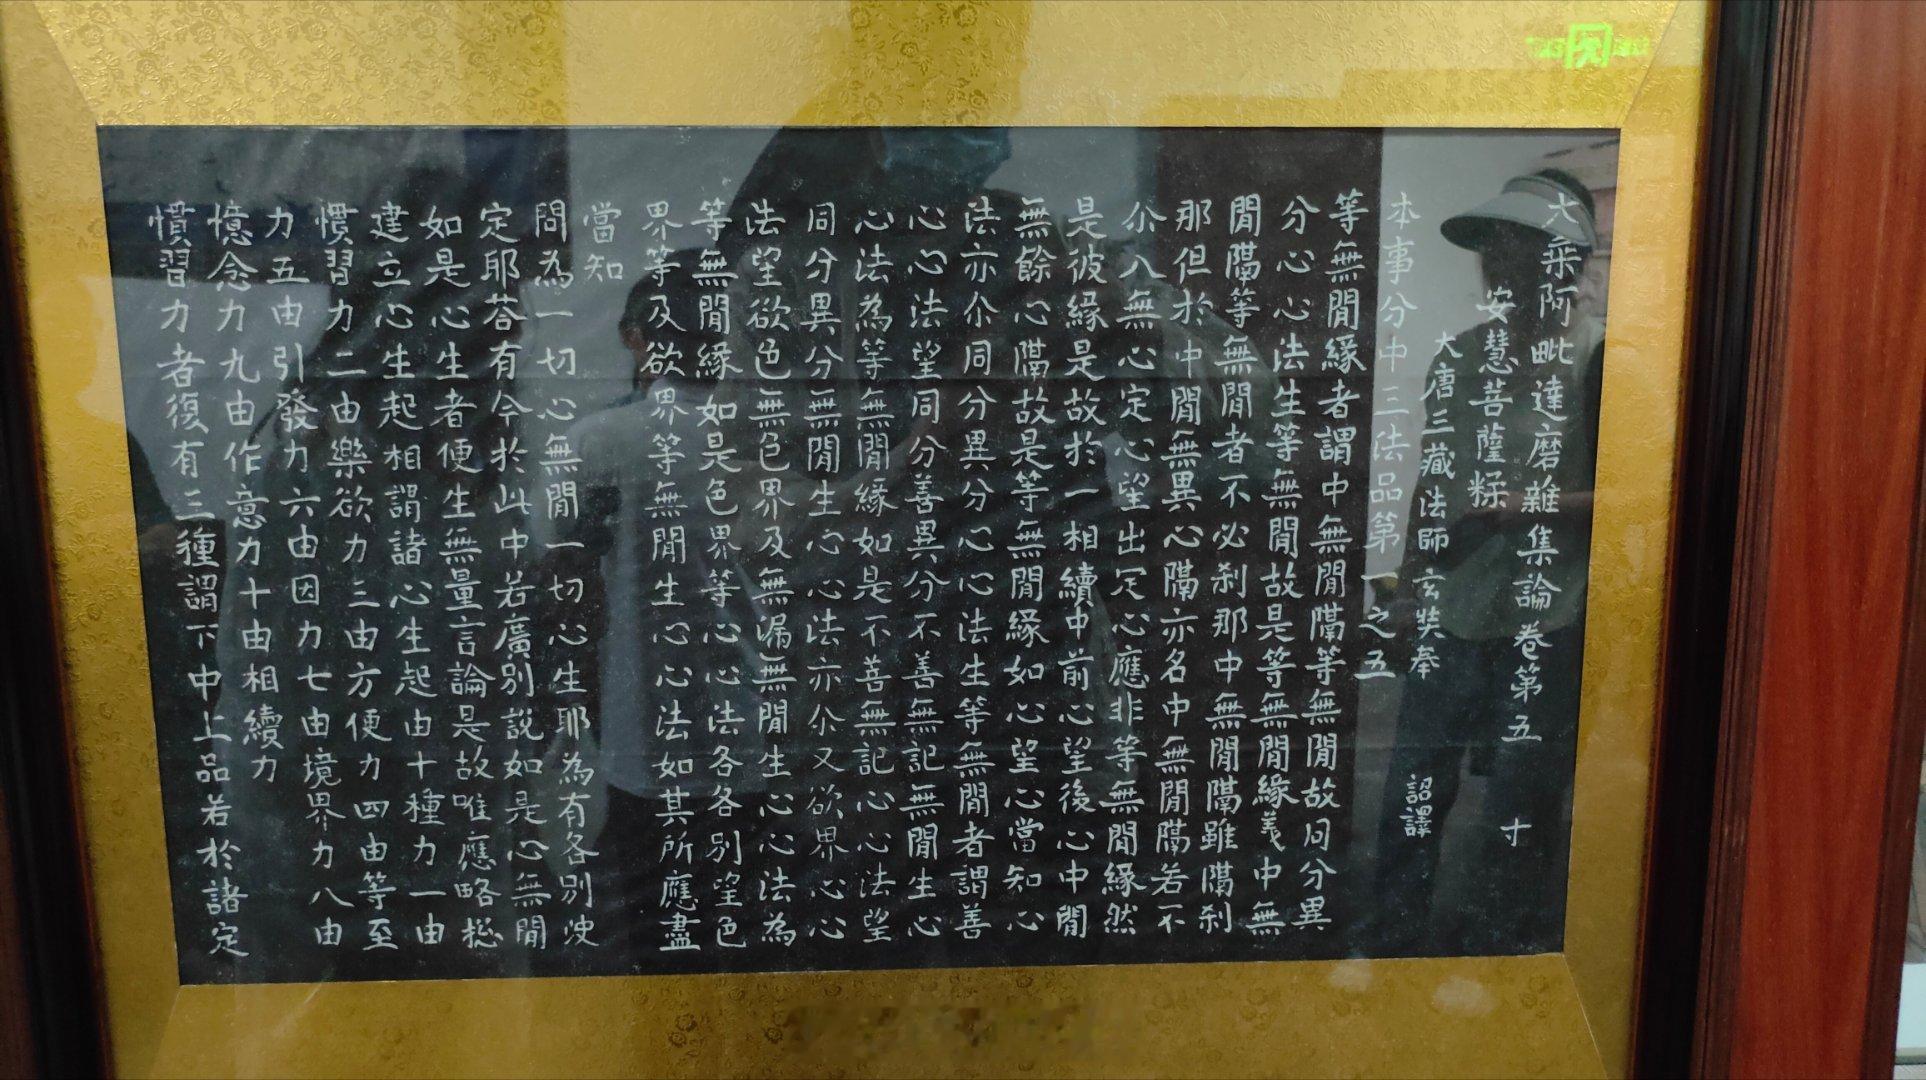 大乗阿毗達磨雜集論卷第五 寸
安慧菩薩糅
大唐三藏法師玄奘奉 詔譯
本事分中三法品第一之五
等無閒緣者謂中無閒隔等無閒故同分異
分心心法生等無閒故是等無閒緣義中無
閒隔等無閒者不必刹那中無閒隔雖隔刹
那但於中閒無異心隔亦名中無閒隔若不
尒入無心定心望出定心應非等無閒緣然
是彼緣是故於一相續中前心望後心中閒
無餘心隔故是等無閒緣如心望心當知心
法亦尒同分異分心心法生等無閒者謂善
心心法望同分善異分不善無記無閒生心
心法為等無閒緣如是不善無記心心法望
同分異分無閒生心心法亦尒又欲界心心
法望欲色無色界及無漏無閒生心心法為
等無閒緣如是色界等心心法各各別望色
界等及欲界等無閒生心心法如其所應盡
當知
問為一切心無閒一切心生耶為有各別決
定耶荅有今於此中若廣別說如是心無閒
如是心生者便生無量言論是故唯應略摠
建立心生起相謂諸心生起由十種力一由
慣習力二由樂欲力三由方便力四由等至
力五由引發力六由因力七由境界力八由
憶念力九由作意力十由相續力
慣習力者復有三種謂下中上品若於諸定